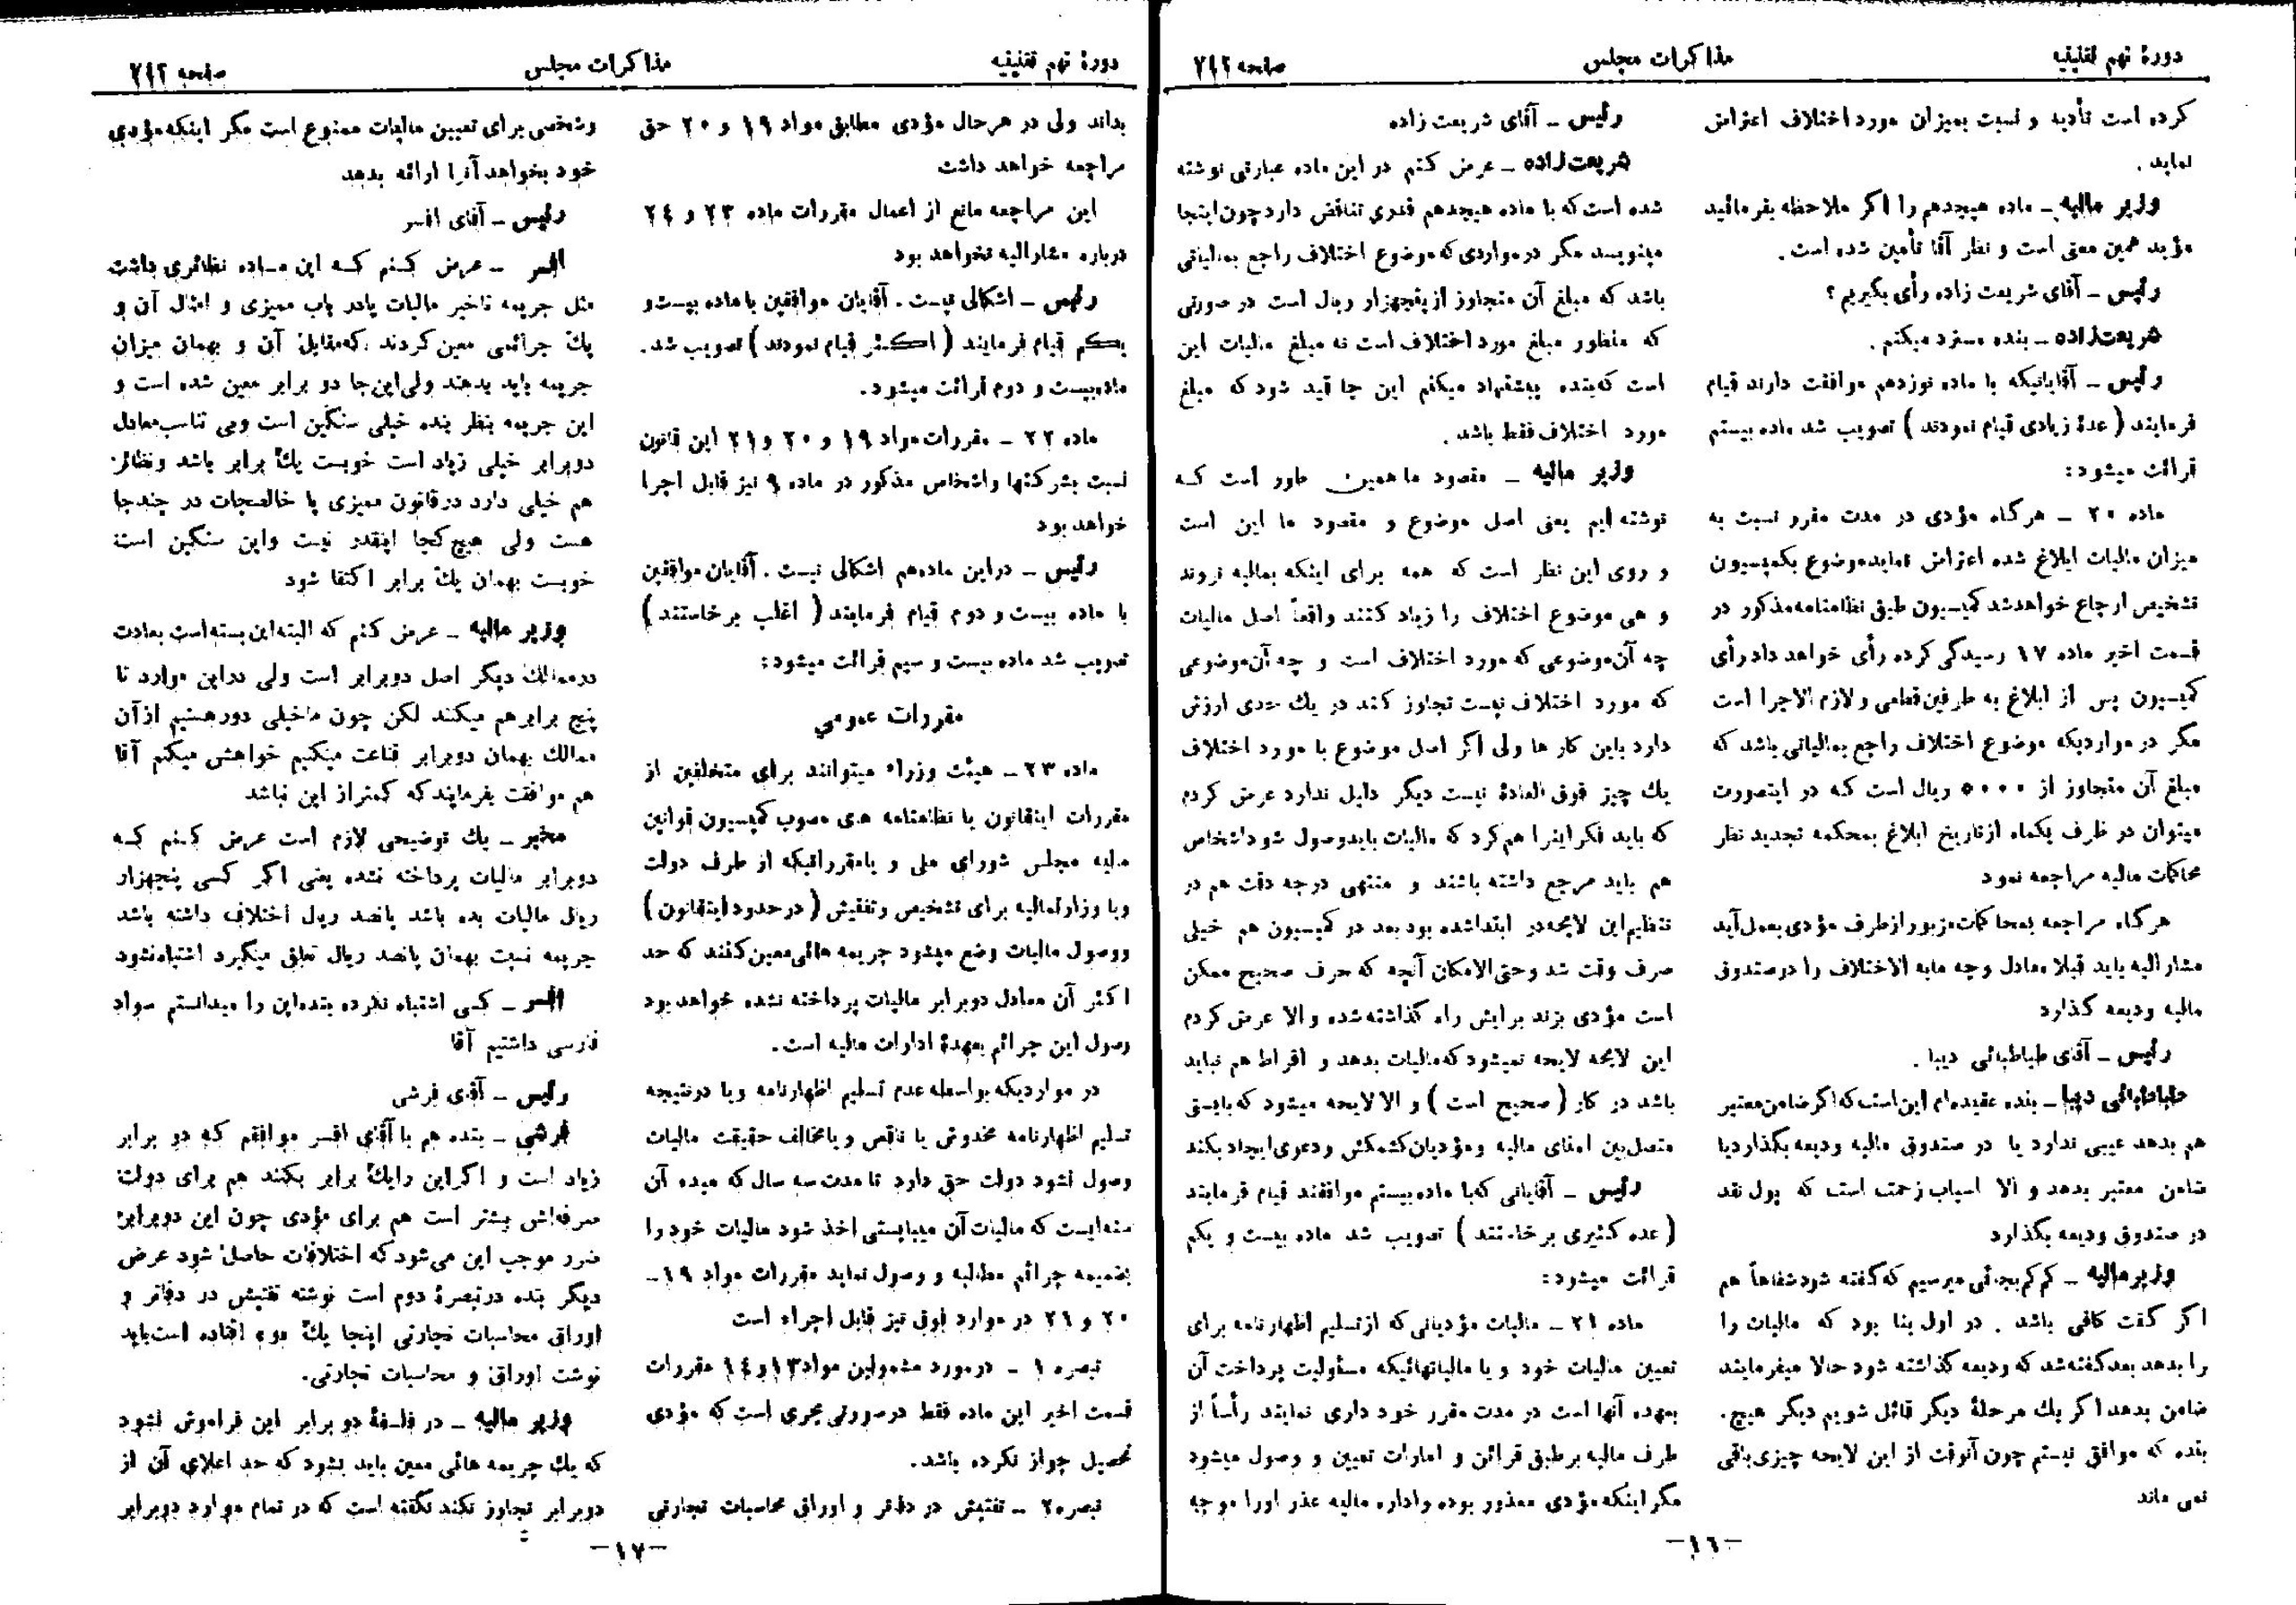 دورهٔ نهم تقنینیه
مذاکرات مجلس
صفحه ۷۴۲
کرده است تأدیه و نسبت بمیزان مورد اختلاف اعتراض
نماید .
وزیر مالیه ـ ماده هیجدهم را اگر ملاحظه بفرمائید
مؤید همین معنی است و نظر آقا تأمین شده است .
رئیس ـ آقای شریعت زاده رأی بگیریم ؟
شریعت‌زاده ـ بنده مسترد میکنم .
رئیس ـ آقایانیکه با ماده نوزدهم موافقت دارند قیام
فرمایند ( عدهٔ زیادی قیام نمودند ) تصویب شد ماده بیستم
قرائت میشود :
ماده ۲۰ ـ هرگاه مؤدی در مدت مقرر نسبت به
میزان مالیات ابلاغ شده اعتراض نماید موضوع بکمیسیون
تشخیص ارجاع خواهد شد کمیسیون طبق نظامنامه مذکور در
قسمت اخیر ماده ۱۷ رسیدگی کرده رأی خواهد داد رأی
کمیسیون پس از ابلاغ به طرفین قطعی و لازم الاجرا است
مگر در مواردیکه موضوع اختلاف راجع بمالیاتی باشد که
مبلغ آن متجاوز از ۵۰۰۰ ریال است که در اینصورت
میتوان در ظرف یکماه از تاریخ ابلاغ بمحکمه تجدید نظر
محاکمات مالیه مراجعه نمود
هرگاه مراجعه بمحاکمات مزبور از طرف مؤدی بعمل آید
مشارالیه باید قبلا معادل وجه مابه الاختلاف را در صندوق
مالیه ودیعه گذارد
رئیس ـ آقای طباطبائی دیبا .
طباطبائی دیبا ـ بنده عقیده‌ام این است که اگر ضامن معتبر
هم بدهد عیبی ندارد یا در صندوق مالیه ودیعه بگذارد یا
ضامن معتبر بدهد و الا اسباب زحمت است که پول نقد
در صندوق ودیعه بگذارد
وزیر مالیه ـ کم کم بجائی میرسیم که گفته شود شفاهاً هم
اگر گفت کافی باشد . در اول بنا بود که مالیات را
را بدهد بعد گفته شد که ودیعه گذاشته شود حالا میفرمایند
ضامن بدهد اگر یك مرحلهٔ دیگر قائل شویم دیگر هیچ .
بنده که موافق نیستم چون آنوقت از این لایحه چیزی باقی
نمی ماند
رئیس ـ آقای شریعت زاده
شریعت‌زاده ـ عرض کنم در این ماده عبارتی نوشته
شده است که با ماده هیجدهم قدری تناقض دارد چون اینجا
مینویسد مگر در مواردی که موضوع اختلاف راجع بمالیاتی
باشد که مبلغ آن متجاوز از پنجهزار ریال است در صورتی
که منظور مبلغ مورد اختلاف است نه مبلغ مالیات این
است که بنده پیشنهاد میکنم این جا قید شود که مبلغ
مورد اختلاف فقط باشد .
وزیر مالیه ـ مقصود ما همین طور است که
نوشته ایم یعنی اصل موضوع و مقصود ما این است
و روی این نظر است که همه برای اینکه بمالیه نروند
و هی موضوع اختلاف را زیاد کنند واقعاً اصل مالیات
چه آن موضوعی که مورد اختلاف است و چه آن موضوعی
که مورد اختلاف نیست تجاوز کند در یك حدی ارزش
دارد باین کار ها ولی اگر اصل موضوع یا مورد اختلاف
یك چیز فوق العادهٔ نیست دیگر دلیل ندارد عرض کردم
که باید فکر اینرا هم کرد که مالیات باید وصول شود اشخاص
هم باید مرجع داشته باشند و منتهی درجه دقت هم در
تنظیم این لایحه در ابتدا شده بود بعد در کمیسیون هم خیلی
صرف وقت شد و حتی الامکان آنچه که حرف صحیح ممکن
است مؤدی بزند برایش راه گذاشته شده و الا عرض کردم
این لایحه لایحه نمیشود که مالیات بدهد و افراط هم نباید
باشد در کار ( صحیح است ) و الا لایحه میشود که بایستی
متصل بین امنای مالیه و مؤدیان کشمکش و دعوی ایجاد بکند
رئیس ـ آقایانی که با ماده بیستم موافقند قیام فرمایند
( عده کثیری برخاستند ) تصویب شد ماده بیست و یکم
قرائت میشود :
ماده ۲۱ ـ مالیات مؤدیانی که از تسلیم اظهارنامه برای
تعیین مالیات خود و یا مالیاتهائیکه مسئولیت پرداخت آن
بعهده آنها است در مدت مقرر خود داری نمایند رأساً از
طرف مالیه بر طبق قرائن و امارات تعیین و وصول میشود
مگر اینکه مؤدی معذور بوده و اداره مالیه عذر او را موجه
ـ۱۶ـ
دورهٔ نهم تقنینیه
مذاکرات مجلس
صفحه ۷۴۳
بداند ولی در هر حال مؤدی مطابق مواد ۱۹ و ۲۰ حق
مراجعه خواهد داشت
این مراجعه مانع از اعمال مقررات ماده ۲۳ و ۲۴
درباره مشارالیه نخواهد بود
رئیس ـ اشکالی نیست . آقایان موافقین با ماده بیست و
یکم قیام فرمایند ( اکثر قیام نمودند ) تصویب شد .
ماده بیست و دوم قرائت میشود .
ماده ۲۲ ـ مقررات مواد ۱۹ و ۲۰ و ۲۱ این قانون
نسبت بشرکتها و اشخاص مذکور در ماده ۹ نیز قابل اجرا
خواهد بود
رئیس ـ در این ماده هم اشکالی نیست . آقایان موافقین
با ماده بیست و دوم قیام فرمایند ( اغلب برخاستند )
تصویب شد ماده بیست و سیم قرائت میشود :
مقررات عمومی
ماده ۲۳ ـ هیئت وزراء میتوانند برای متخلفین از
مقررات اینقانون یا نظامنامه های مصوب کمیسیون قوانین
مالیه مجلس شورای ملی و یا مقرراتیکه از طرف دولت
و یا وزارتمالیه برای تشخیص و تفتیش ( در حدود اینقانون )
و وصول مالیات وضع میشود جریمه هائی معین کنند که حد
اکثر آن معادل دو برابر مالیات پرداخته نشده خواهد بود
وصول این جرائم بعهدهٔ ادارات مالیه است .
در مواردیکه بواسطه عدم تسلیم اظهارنامه و یا در نتیجه
تسلیم اظهارنامه مخدوش یا ناقص و یا مخالف حقیقت مالیات
وصول نشود دولت حق دارد تا مدت سه سال که مبده آن
سنه‌ایست که مالیات آن میبایستی اخذ شود مالیات خود را
بضمیمه جرائم مطالبه و وصول نماید مقررات مواد ۱۹ـ
۲۰ و ۲۱ در موارد فوق نیز قابل اجراء است
تبصره ۱ ـ در مورد مشمولین مواد ۱۳ و ۱۴ مقررات
قسمت اخیر این ماده فقط در صورتی مجری است که مؤدی
تحصیل جواز نکرده باشد .
تبصره ۲ ـ تفتیش در دفاتر و اوراق محاسبات تجارتی
و شخصی برای تعیین مالیات ممنوع است مگر اینکه مؤدی
خود بخواهد آنرا ارائه بدهد
رئیس ـ آقای افسر
افسر ـ عرض کنم که این ماده نظائری داشت
مثل جریمه تاخیر مالیات یا در باب ممیزی و امثال آن و
یك جرائمی معین کردند که مقابل آن و بهمان میزان
جریمه باید بدهند ولی این جا دو برابر معین شده است و
این جریمه بنظر بنده خیلی سنگین است و بی تناسب معادل
دو برابر خیلی زیاد است خوبست یك برابر باشد و نظائر
هم خیلی دارد در قانون ممیزی یا خالصجات در چند جا
هست ولی هیچ کجا اینقدر نیست و این سنگین است
خوبست بهمان یك برابر اکتفا شود
وزیر مالیه ـ عرض کنم که البته این بسته است بعادت
در ممالك دیگر اصل دو برابر است ولی در این موارد تا
پنج برابر هم میکنند لکن چون ما خیلی دور هستیم از آن
ممالك بهمان دو برابر قناعت میکنیم خواهش میکنم آقا
هم موافقت بفرمایند که کمتر از این نباشد
مخبر ـ یك توضیحی لازم است عرض کنم که
دو برابر مالیات پرداخته نشده یعنی اگر کسی پنجهزار
ریال مالیات بده باشد پانصد ریال اختلاف داشته باشد
جریمه نسبت بهمان پانصد ریال تعلق میگیرد اشتباه نشود
افسر ـ کسی اشتباه نکرده بنده این را میدانستم سواد
فارسی داشتیم آقا
رئیس ـ آقای فرشی
فرشی ـ بنده هم با آقای افسر موافقم که دو برابر
زیاد است و اگر این را یك برابر بکنند هم برای دولت
صرفه‌اش بیشتر است هم برای مؤدی چون این دو برابر
ضرر موجب این می‌شود که اختلافات حاصل شود عرض
دیگر بنده در تبصرهٔ دوم است نوشته تفتیش در دفاتر و
اوراق محاسبات تجارتی اینجا یك افتاده است باید
نوشت اوراق و محاسبات تجارتی .
وزیر مالیه ـ در فلسفهٔ دو برابر این فراموش نشود
که یك جریمه هائی معین باید بشود که حد اعلای آن از
دو برابر تجاوز نکند نگفته است که در تمام موارد دو برابر
ـ۱۷ـ